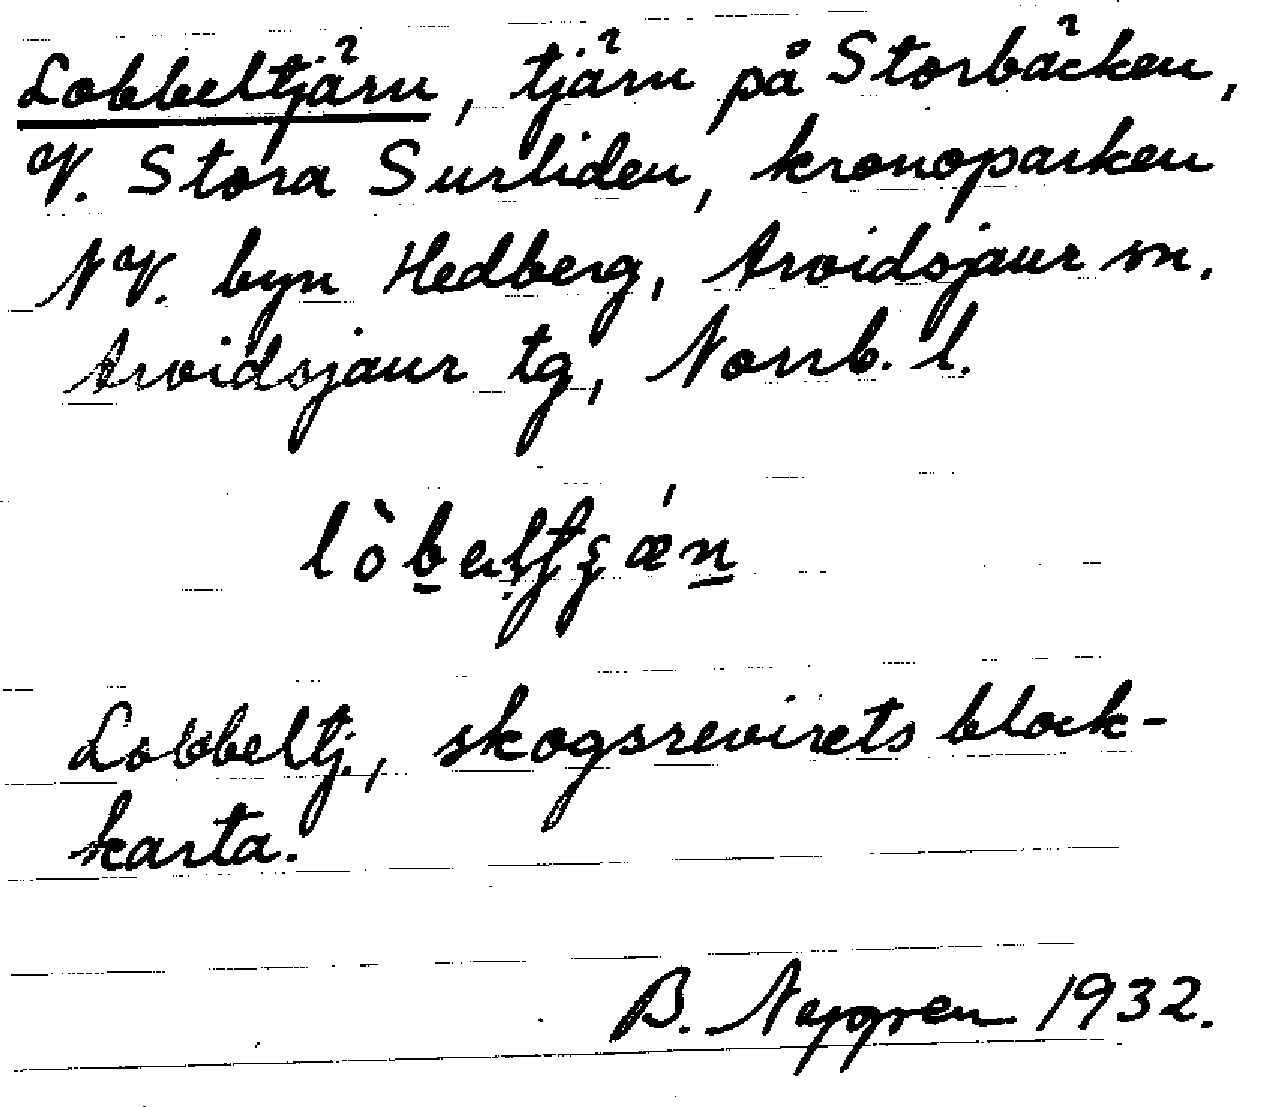 Lobbeltjärn, tjärn på Storbäcken,
V. Stora Surliden, kronoparken
NV. byn Hedberg, Arvidsjaur sn.
Arvidsjaur tg, Norrb. l.
Lobbeltj., skogsrevirets block-
karta.
B. 1932.